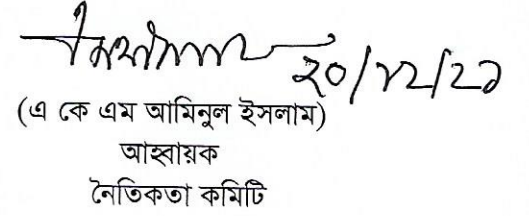 ২০/১২/২১
(এ কে এম আমিনুল ইসলাম)
আহ্বায়ক
নৈতিকতা কমিটি